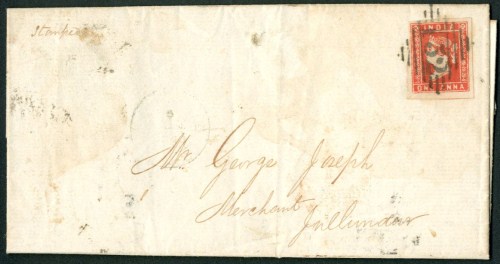 Stamped
INDIA
ONE ANNA
Mr. George Joseph
Merchant
Jullundur